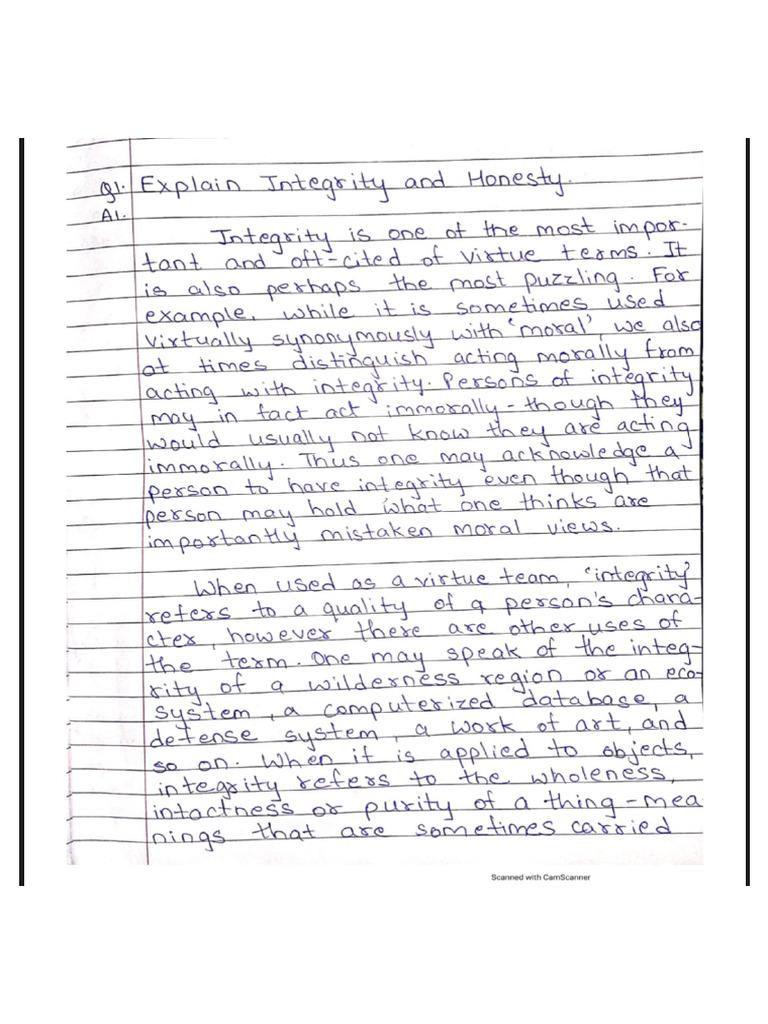 Q1. Explain Integrity and Honesty.
A1.
Integrity is one of the most impor-
tant and oft-cited of virtue terms. It
is also perhaps the most puzzling. For
example, while it is sometimes used
virtually synonymously with 'moral', we also
at times distinguish acting morally from
acting with integrity. Persons of integrity
may in fact act immorally - though they
would usually not know they are acting
immorally. Thus one may acknowledge a
person to have integrity even though that
person may hold what one thinks are
importantly mistaken moral views.
When used as a virtue team, 'integrity'
refers to a quality of a person's chara-
cter, however there are other uses of
the term. One may speak of the integ-
rity of a wilderness region or an eco-
system, a computerized database, a
defense system, a work of art, and
so on. When it is applied to objects,
integrity refers to the wholeness,
intactness or purity of a thing - mea
nings that are sometimes carried
Scanned with CamScanner